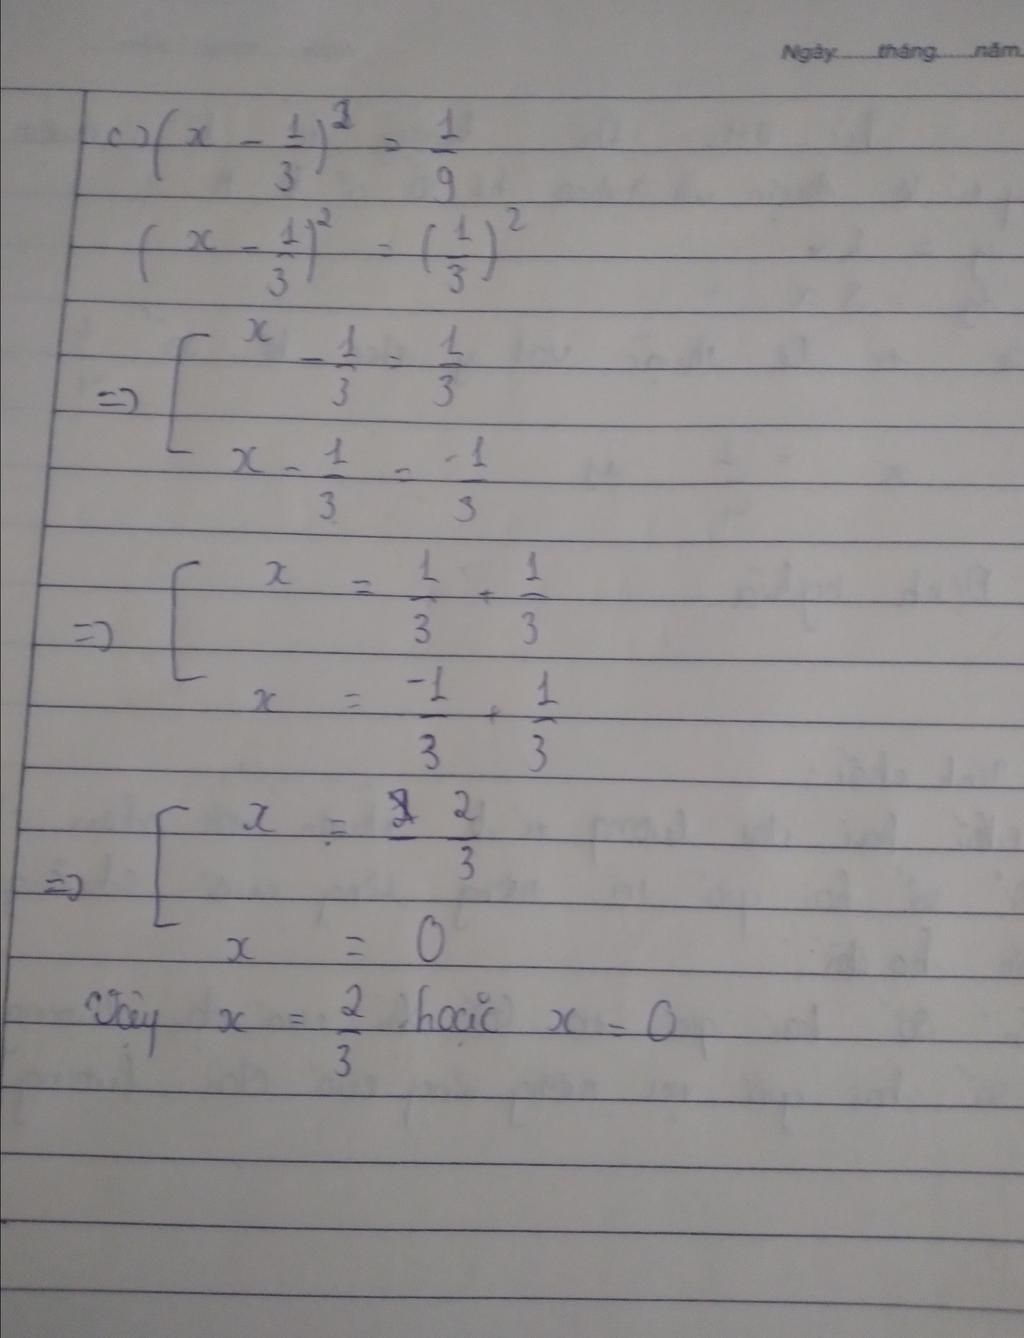 Ngày......tháng......năm
c) (x - 1/3)² = 1/9
(x - 1/3)² = (1/3)²
=> [ x - 1/3 = 1/3
x - 1/3 = -1/3
=> [ x = 1/3 + 1/3
x = -1/3 + 1/3
=> [ x = 2/3
x = 0
Vậy x = 2/3 hoặc x = 0